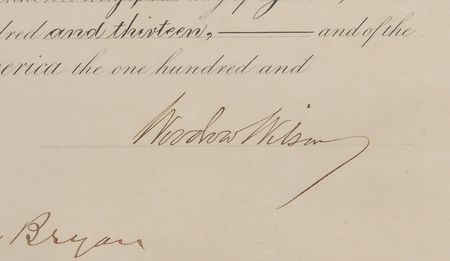 dred and thirteen, and of the
erica the one hundred and
Woodrow Wilson
Bryan